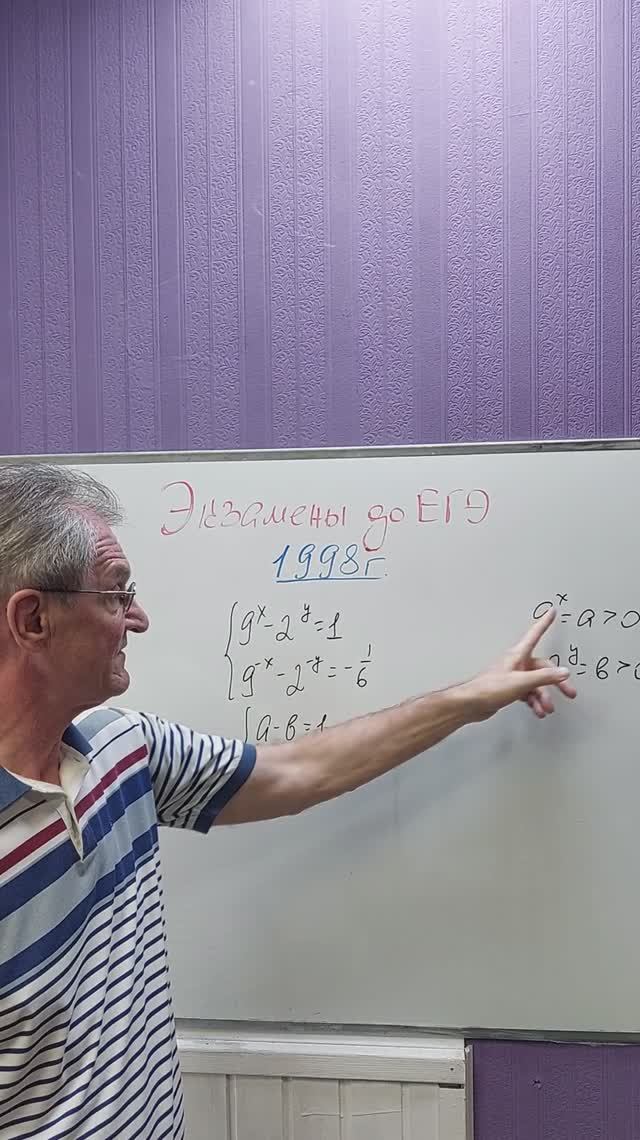 Экзамены до ЕГЭ
1998г.
9ˣ - 2ʸ = 1
9⁻ˣ - 2⁻ʸ = -1/6
a - b = 1
9ˣ = a > 0
2ʸ = b > 0